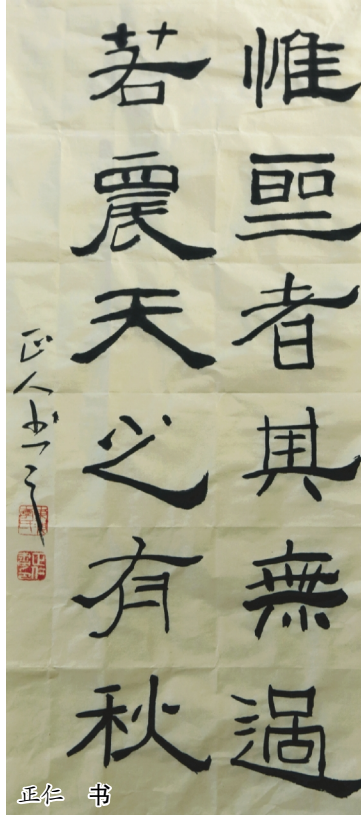 惟聖者其無過
若農天之有秋
正人书
正仁 书